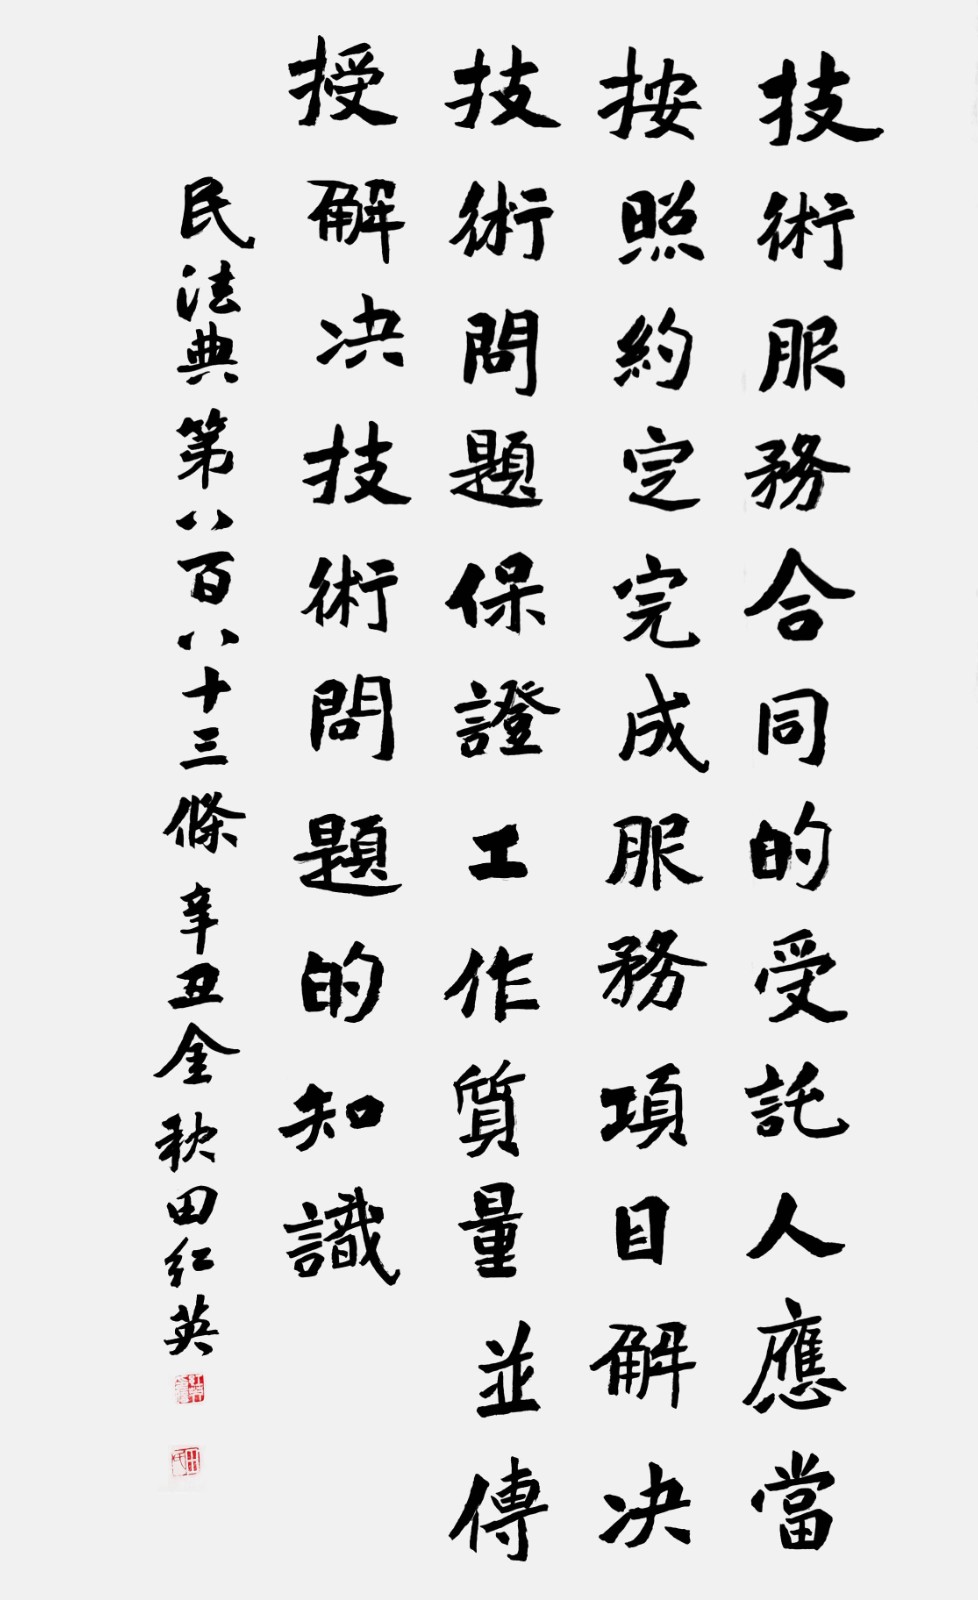 技術服務合同的受託人應當
按照約定完成服務項目解决
技術問題保證工作質量並傳
授解决技術問題的知識
民法典第八百八十三條 辛丑金秋田紅英